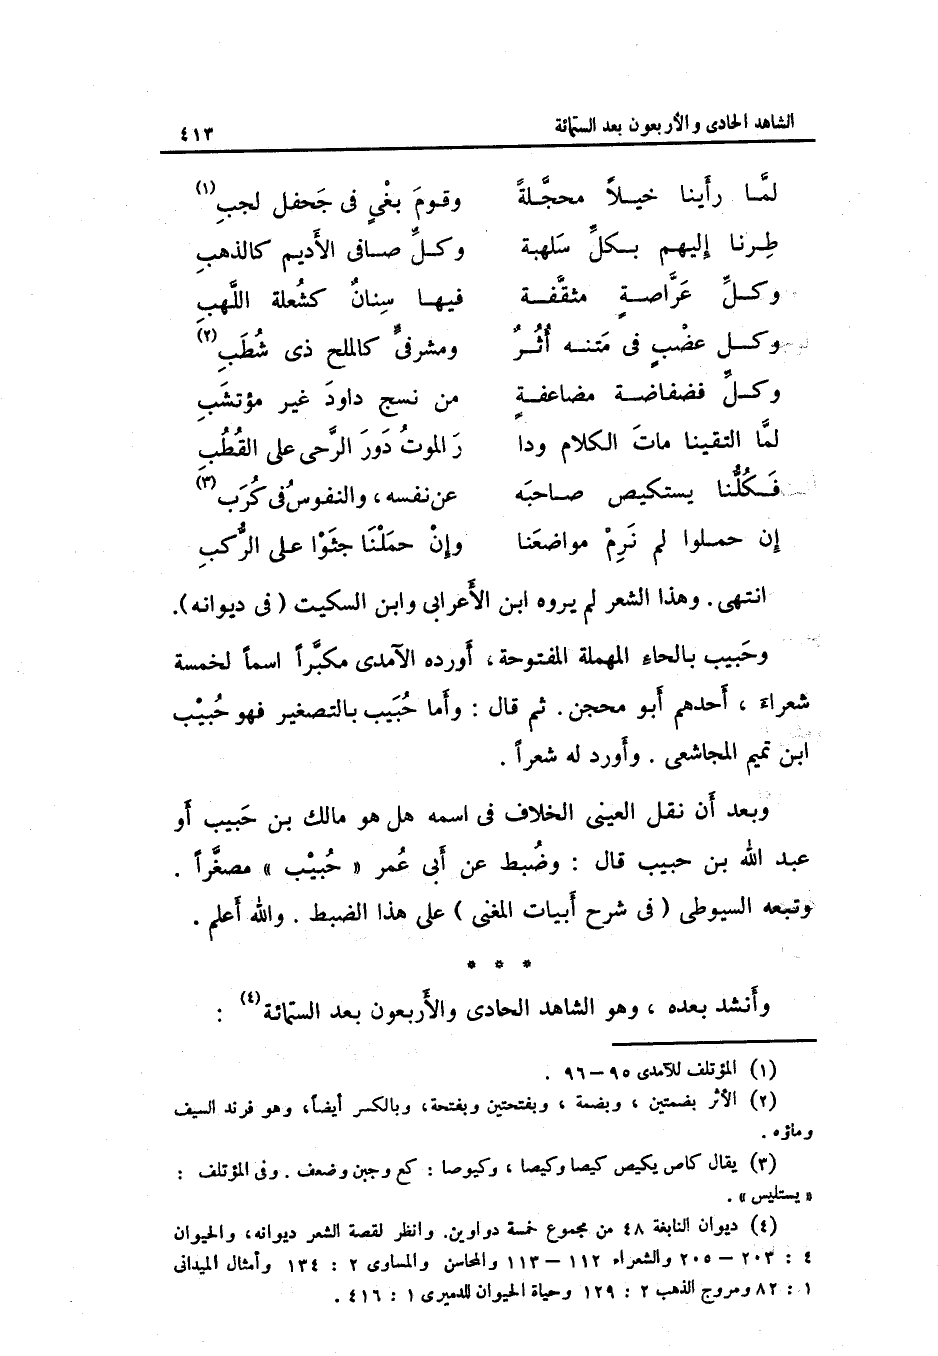 الشاهد الحادى والأربعون بعد الستمائة ٤١٣
لمَّا رأَينا خيلاً محجَّلةً وقومَ بغْيٍ فى جَحفل لجبِ(١)
طِرنا إليهم بكلِّ سَلهبة وكلُّ صافى الأَديم كالذهبِ
وكلِّ عَرَّاصةٍ مثقَّفة فيها سِنانٌ كشُعلة اللَّهبِ
وكل عضْبٍ فى مَتنه أُثُرٌ ومشرفىٌّ كالملح ذى شُطَبِ(٢)
وكلِّ فضفاضة مضاعفةٍ من نسج داودَ غير مؤتشَبِ
لمَّا التقينا ماتَ الكلام ودا رَ الموتُ دَورَ الرَّحى على القُطُبِ
فَكُلُّنا يستكيص صاحبَه عن نفسه، والنفوسُ فى كُرَبِ(٣)
إن حملوا لم نَرِمْ مواضعَنا وإنْ حمَلْنَا جثَوْا على الرُّكبِ
انتهى. وهذا الشعر لم يروه ابن الأَعرابى وابن السكيت (فى ديوانه).
وحَبيب بالحاء المهملة المفتوحة، أَورده الآمدى مكبَّراً اسماً لخمسة
شعراءَ ، أَحدهم أَبو محجن. ثم قال : وأَما حُبَيب بالتصغير فهو حُبيْب
ابن تميم المجاشعى . وأَورد له شعراً .
وبعد أَن نقل العينى الخلاف فى اسمه هل هو مالك بن حَبيب أَو
عبد الله بن حبيب قال : وضُبط عن أَبى عُمر « حُبيْب » مصغَّراً .
وتبعه السيوطى ( فى شرح أَبيات المغنى ) على هذا الضبط . والله أَعلم .
* * *
وأَنشد بعده ، وهو الشاهد الحادى والأَربعون بعد الستمائة(٤) :
(١) المؤتلف للآمدى ٩٥ – ٩٦ .
(٢) الأثر بضمتين ، وبضمة ، وبفتحتين وبفتحة، وبالكسر أيضاً، وهو فرند السيف
وماؤه .
(٣) يقال كاص يكيص كيصا وكيصا ، وكيوصا : كع وجبن وضعف . وفى المؤتلف :
« يستليس » .
(٤) ديوان النابغة ٤٨ من مجموع خمسة دواوين. وانظر لقصة الشعر ديوانه، والحيوان
٤ : ٢٠٣ – ٢٠٥ والشعراء ١١٢ – ١١٣ والمحاسن والمساوى ٢ : ١٣٤ وأمثال الميدانى
١ : ٨٢ ومروج الذهب ٢ : ١٢٩ وحياة الحيوان للدميرى ١ : ٤١٦ .